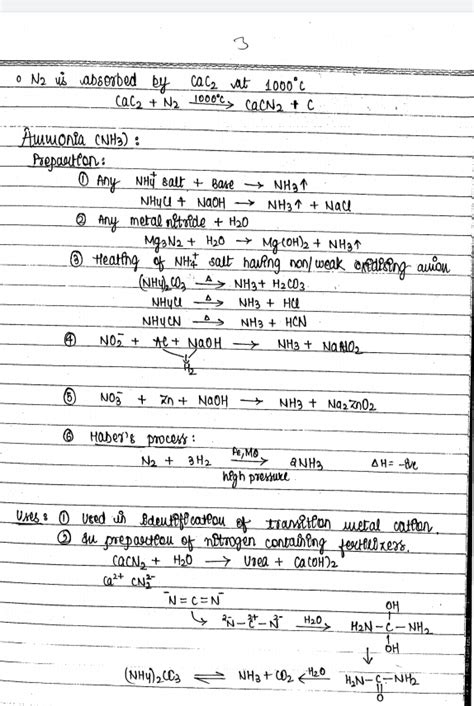 3
o N₂ is absorbed by CaC₂ at 1000°C
CaC₂ + N₂ —1000°C→ CaCN₂ + C
Ammonia (NH₃) :
Preparation :
① Any NH₄⁺ salt + Base → NH₃↑
NH₄Cl + NaOH → NH₃↑ + NaCl
② Any metal nitride + H₂O
Mg₃N₂ + H₂O → Mg(OH)₂ + NH₃↑
③ Heating of NH₄⁺ salt having non/weak oxidising anion
(NH₄)₂CO₃ —Δ→ NH₃ + H₂CO₃
NH₄Cl —Δ→ NH₃ + HCl
NH₄CN —Δ→ NH₃ + HCN
④ NO₂⁻ + Al + NaOH → NH₃ + NaAlO₂
H₂
⑤ NO₃⁻ + Zn + NaOH → NH₃ + Na₂ZnO₂
⑥ Haber's process :
Fe, Mo
N₂ + 3H₂ → 2NH₃ ΔH = -ve
high pressure
Uses : ① Used in identification of transition metal cation.
② In preparation of nitrogen containing fertilizers.
CaCN₂ + H₂O → Urea + Ca(OH)₂
Ca²⁺ CN₂²⁻
⁻N = C = N⁻
OH
³⁻N – C⁴⁺ – N³⁻ —H₂O→ H₂N – C – NH₂
OH
(NH₄)₂CO₃ ⇌ NH₃ + CO₂ ←H₂O— H₂N – C – NH₂
O